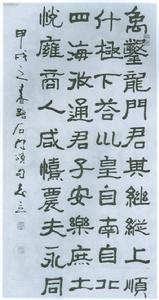 禹鑿龍門君其繼縱上順
斗極下答巛皇自南自北
四海攸通君子安樂庶士
悅雍商人咸憘農夫永同
甲戌之春 石門頌句